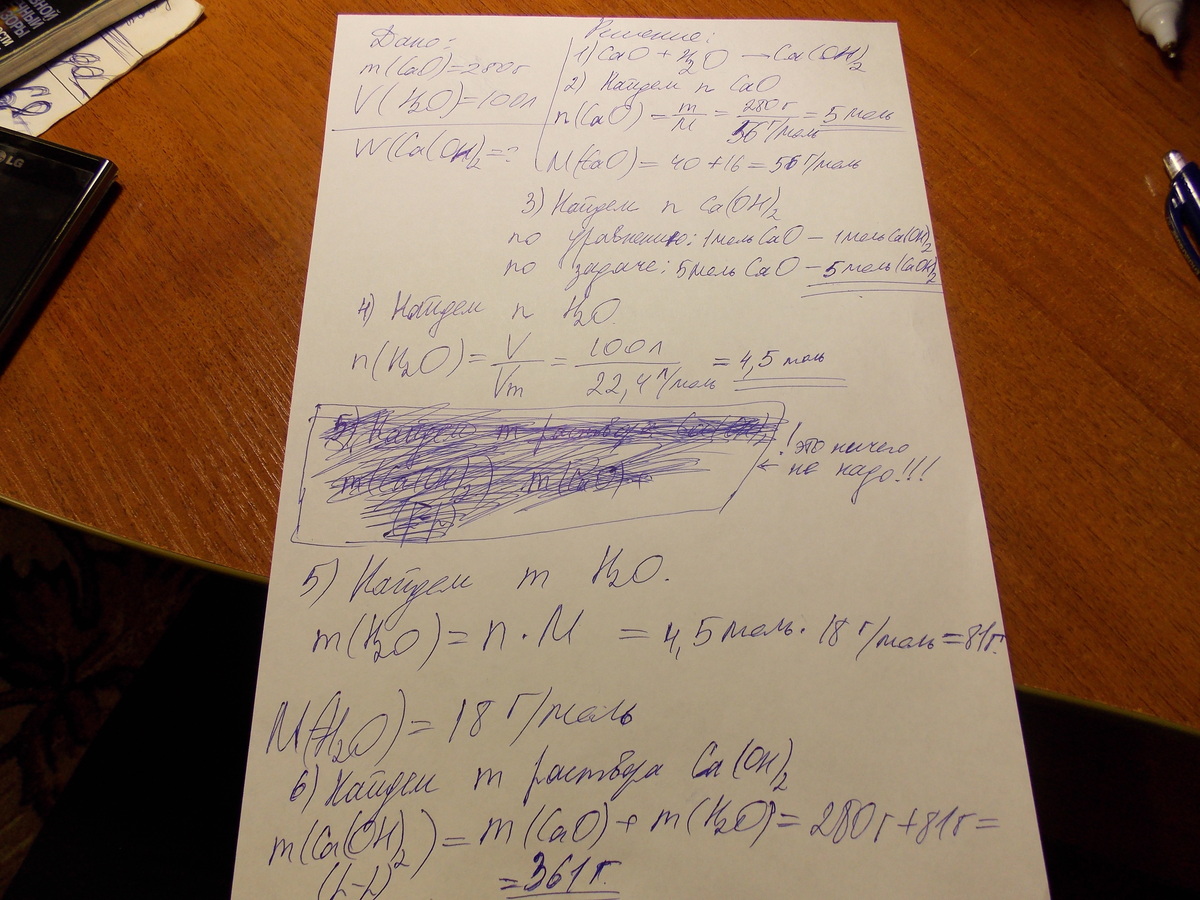 Дано:
m(CaO)=280г
V(H2O)=100л
W(Ca(OH)2=?
Решение:
1) CaO + H2O → Ca(OH)2
2) Найдем n CaO
n(CaO) = m/M = 280г/56г/моль = 5 моль
M(CaO) = 40 + 16 = 56г/моль
3) Найдем n Ca(OH)2
по уравнению: 1моль CaO – 1моль Ca(OH)2
по задаче: 5моль CaO – 5моль (CaOH)2
4) Найдем n H2O.
n(H2O) = V/Vm = 100л/22,4л/моль = 4,5 моль
5) Найдем m раствора Ca(OH)2
m(Ca(OH)2) m(CaO)+
(р-р)
! это ничего
← не надо!!!
5) Найдем m H2O.
m(H2O) = n · M = 4,5моль · 18г/моль = 81г.
M(H2O) = 18 г/моль
6) Найдем m раствора Ca(OH)2
m(Ca(OH)2) = m(CaO) + m(H2O) = 280г + 81г =
(р-р)
= 361г.
LG